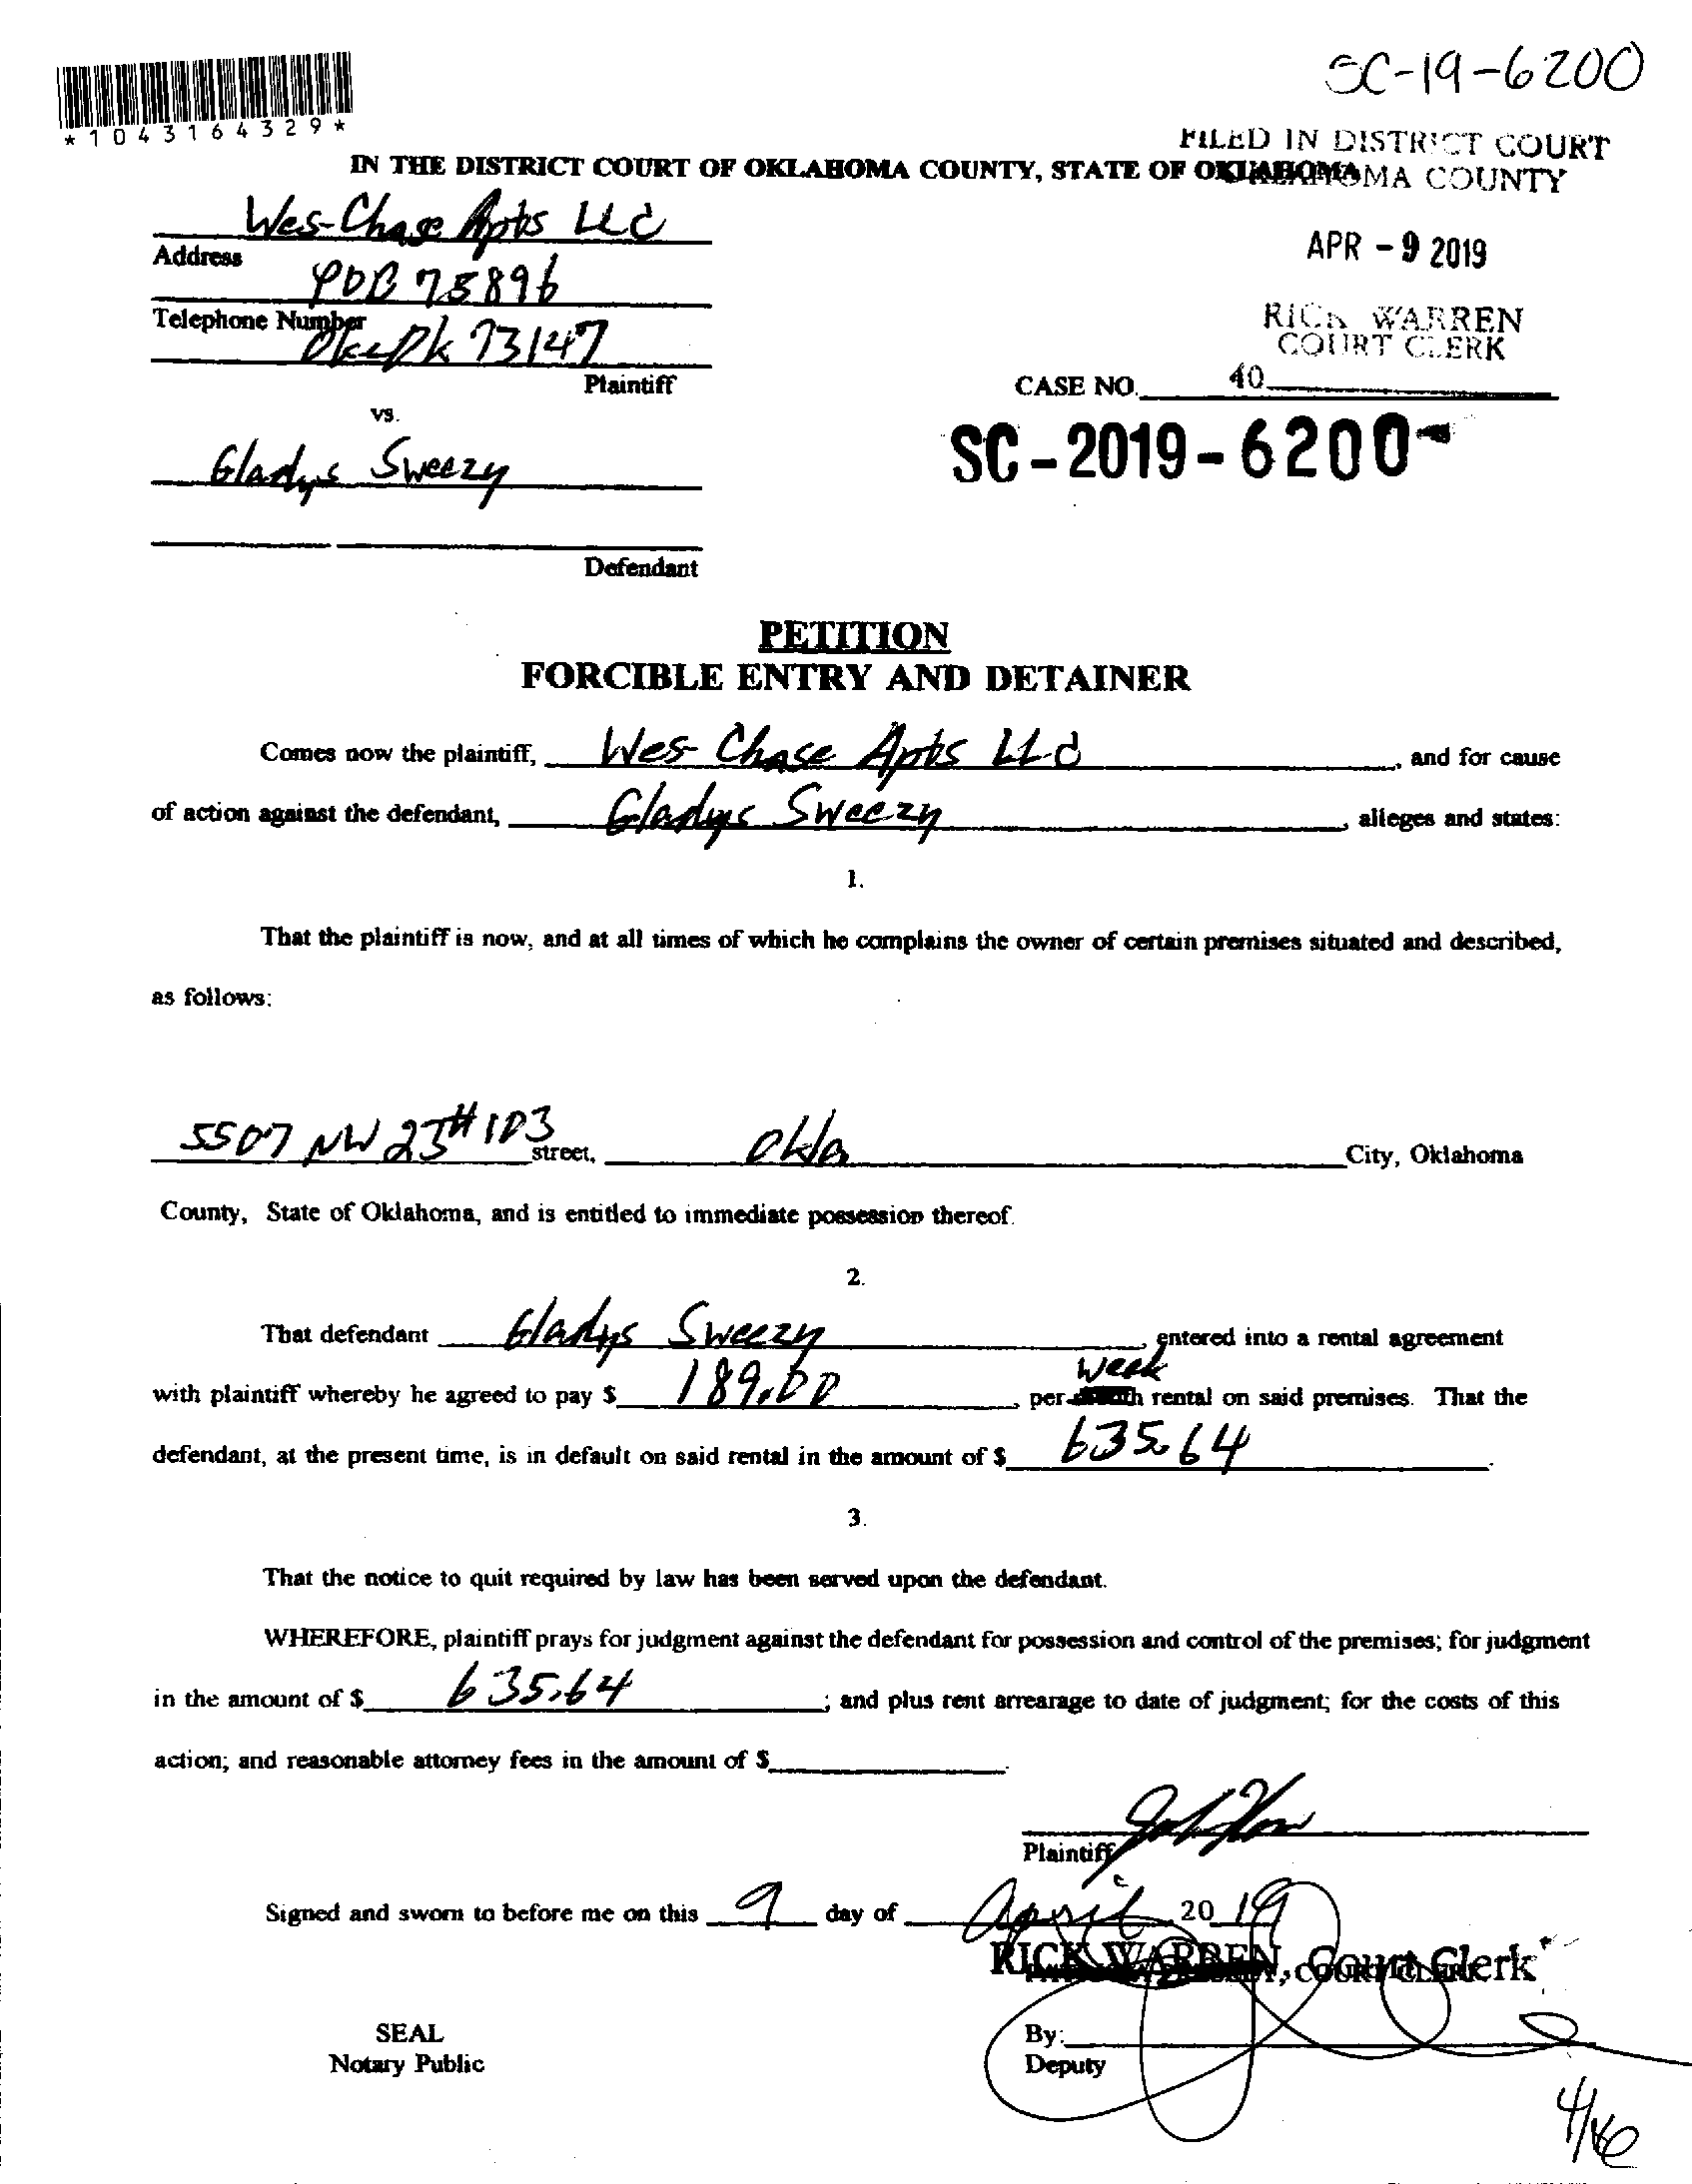 SC-19-6200
*1043164329*
FILED IN DISTRICT COURT
IN THE DISTRICT COURT OF OKLAHOMA COUNTY, STATE OF OKLAHOMA
OKLAHOMA COUNTY
Wes-Chase Apts LLC
APR - 9 2019
Address
POB 75896
RICK WARREN
COURT CLERK
Telephone Number
Okc Ok 73147
Plaintiff
CASE NO. 40
vs.
SC-2019-6200-
Gladys Sweezy
Defendant
PETITION
FORCIBLE ENTRY AND DETAINER
Comes now the plaintiff, Wes-Chase Apts LLC, and for cause
of action against the defendant, Gladys Sweezy, alleges and states:
1.
That the plaintiff is now, and at all times of which he complains the owner of certain premises situated and described,
as follows:
5507 NW 23 #103 street, Okla City, Oklahoma
County, State of Oklahoma, and is entitled to immediate possession thereof.
2.
That defendant Gladys Sweezy, entered into a rental agreement
week
with plaintiff whereby he agreed to pay $ 189.00, per rental on said premises. That the
defendant, at the present time, is in default on said rental in the amount of $ 635.64.
3.
That the notice to quit required by law has been served upon the defendant.
WHEREFORE, plaintiff prays for judgment against the defendant for possession and control of the premises; for judgment
in the amount of $ 635.64; and plus rent arrearage to date of judgment; for the costs of this
action; and reasonable attorney fees in the amount of $
Plaintiff
Signed and sworn to before me on this 9 day of April, 20 19
RICK WARREN, Court Clerk
SEAL
Notary Public
By:
Deputy
4/16